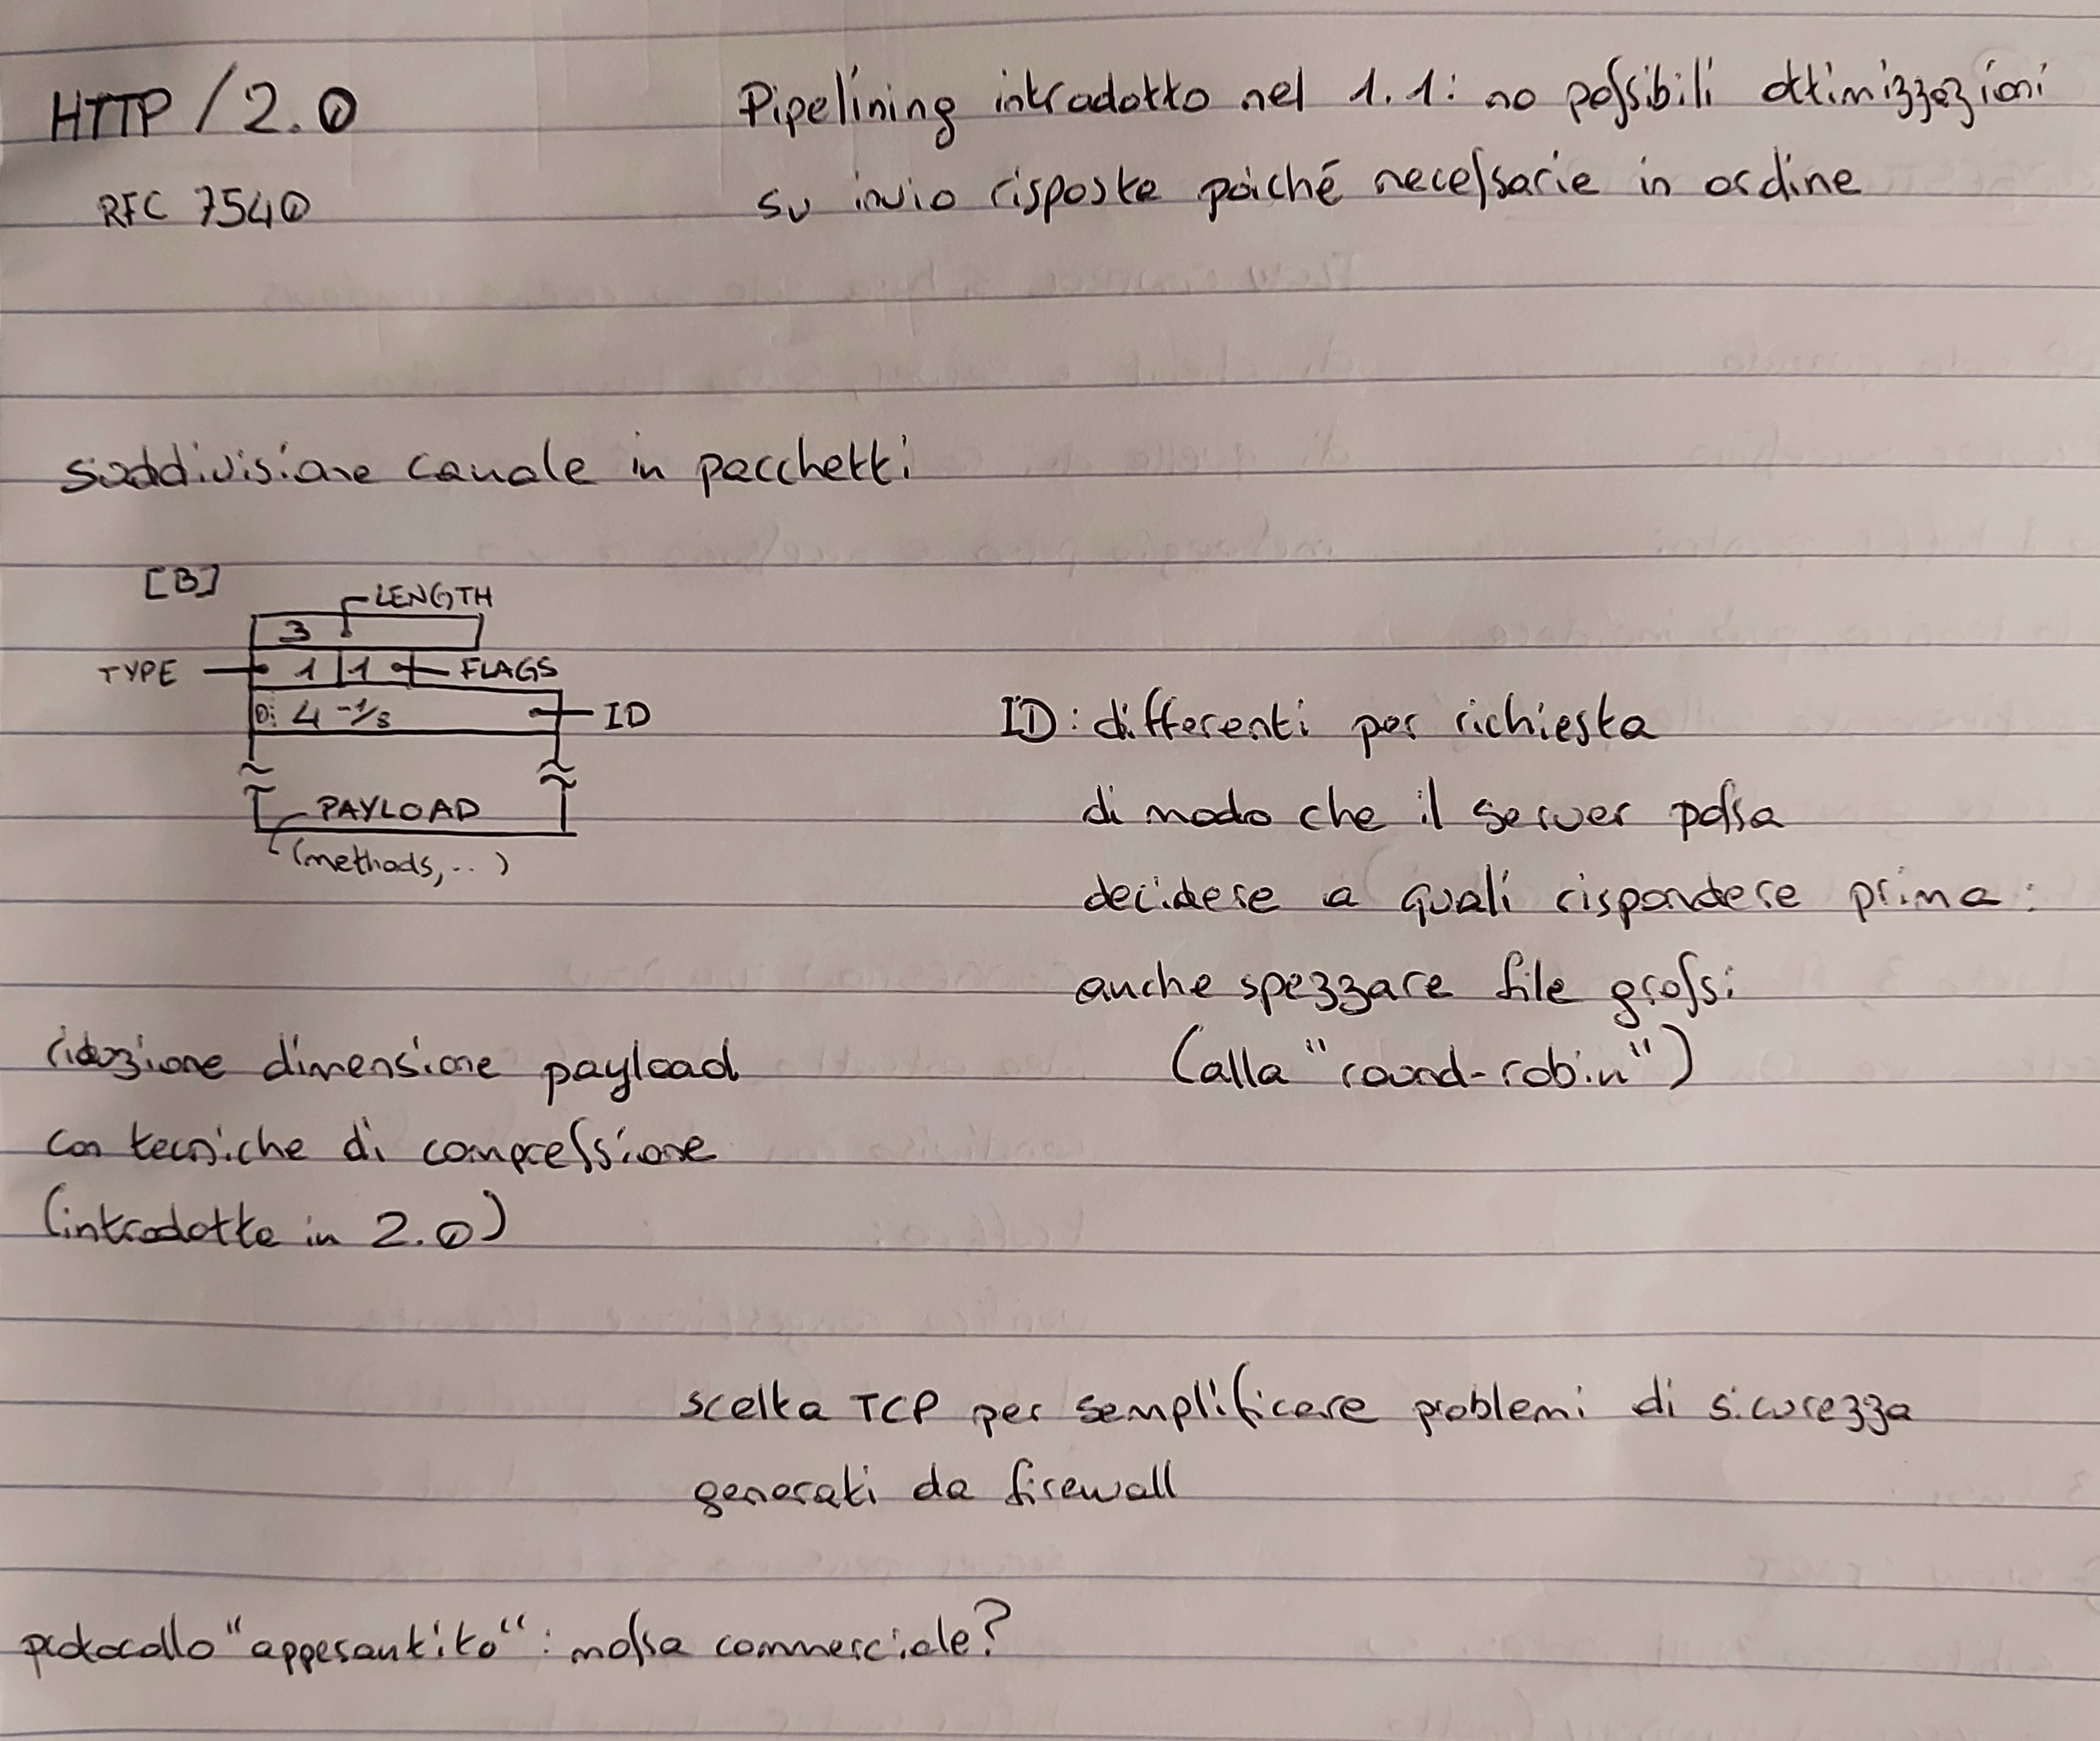 HTTP/2.0
RFC 7540
Pipelining introdotto nel 1.1: no possibili ottimizzazioni
su invio risposte poiché necessarie in ordine
suddivisione canale in pacchetti
[B]
LENGTH
3
TYPE 1 1 FLAGS
0 4 -1/8 ID
PAYLOAD
(methods,..)
ID: differenti per richiesta
di modo che il server possa
decidere a quali rispondere prima:
anche spezzare file grossi
(alla "round-robin")
riduzione dimensione payload
con tecniche di compressione
(introdotte in 2.0)
scelta TCP per semplificare problemi di sicurezza
generati da firewall
protocollo "appesantito": mossa commerciale?